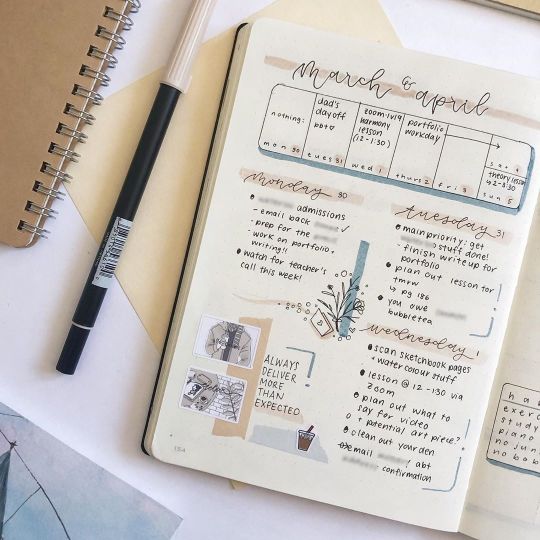 march & april
nothing:
dad's
day off
zoom 1v1 w
harmony
lesson
(12-1:30)
portfolio
workday
theory lesson
↳ 2-3:30
mon 30
tues 31
wed 1
thurs 2
fri 3
sat 4
sun 5
monday 30
admissions
- email back ✓
- prep for the
- work on portfolio
writing!!
watch for teacher's
call this week!
ALWAYS
DELIVER
MORE
THAN
EXPECTED
tuesday 31
main priority: get
stuff done!
- finish write up for
portfolio
plan out lesson for
tmrw
↳ pg 186
you owe
bubble tea
wednesday 1
scan sketchbook pages
+ water colour stuff
lesson @ 12-130 via
zoom
plan out what to
say for video
+ potential art piece?
clean out your den
email abt
confirmation
184